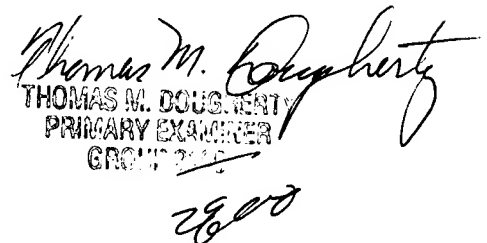 Thomas M. Dougherty
THOMAS M. DOUGHERTY
PRIMARY EXAMINER
GROUP